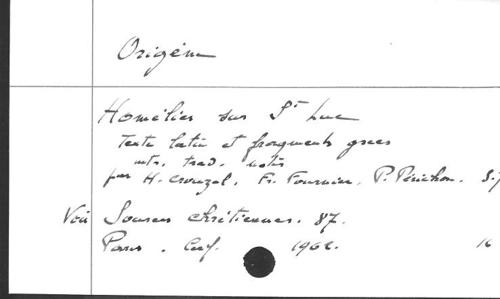 Origène
Homélies sur St Luc
Texte latin et fragments grecs
intr. trad. notes
par H. Crouzel, Fr. Fournier, P. Périchon. S.J
Voir Sources chrétiennes. 87.
Paris. Cerf. 1962. 16